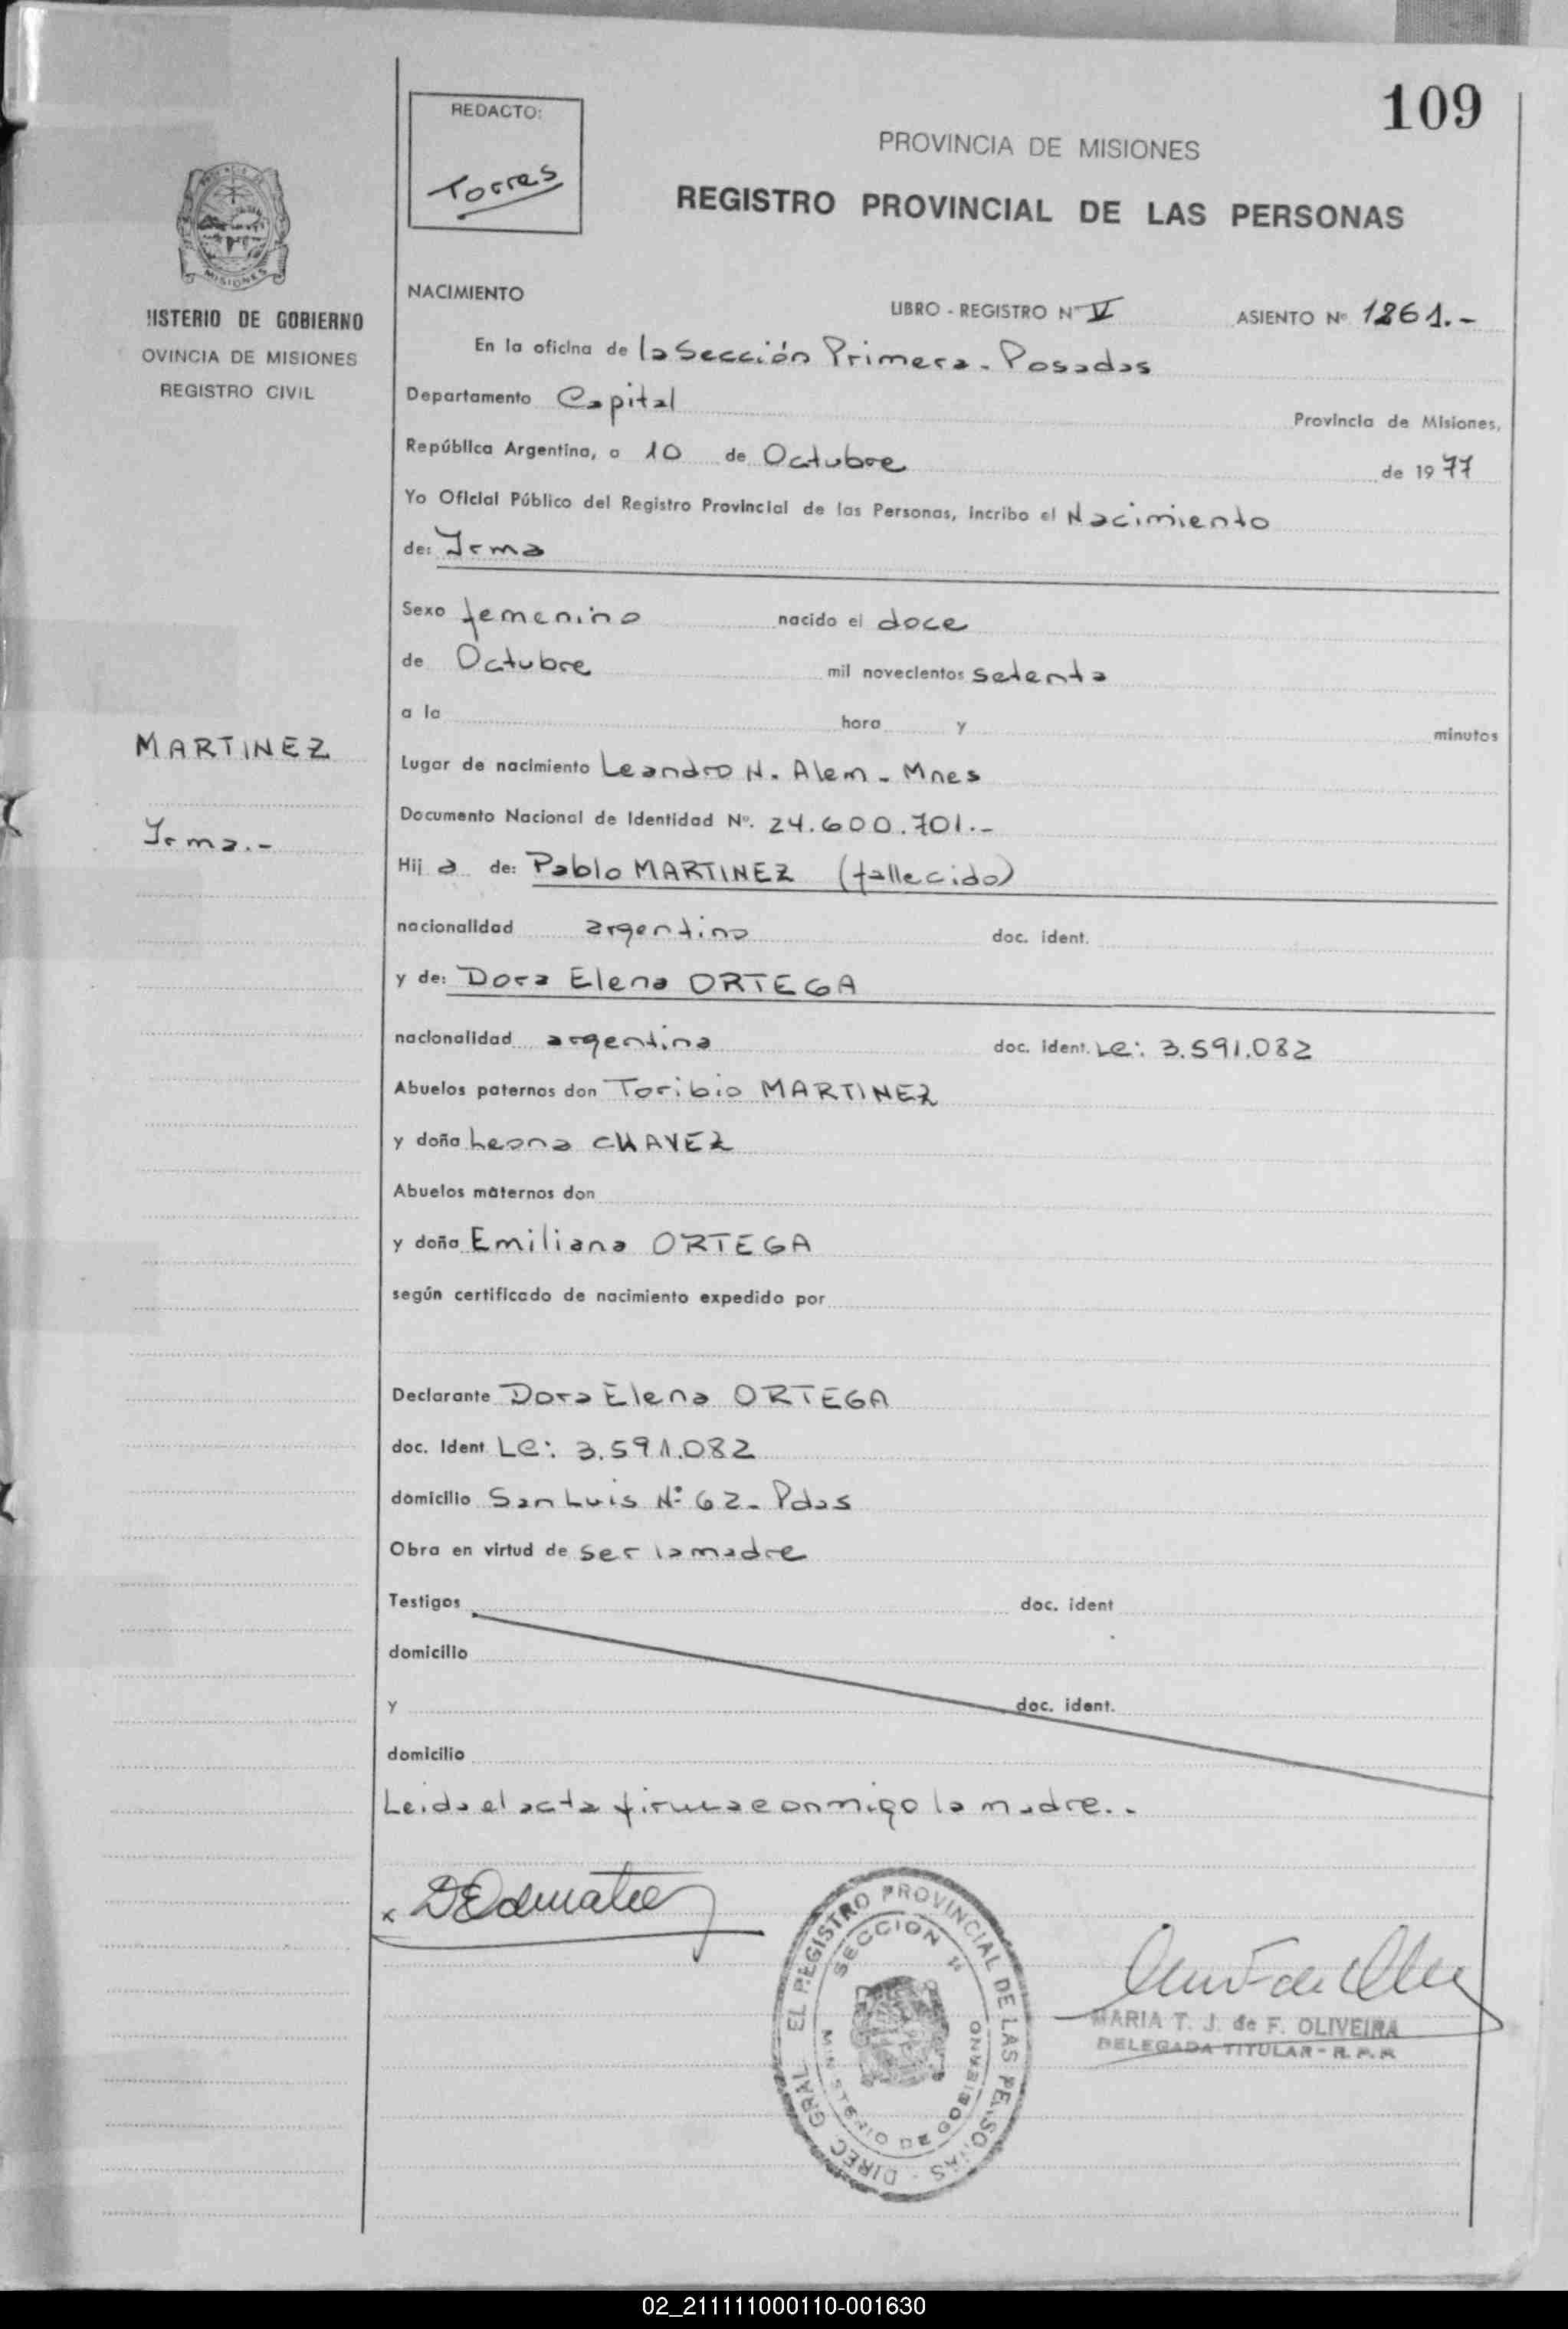 109
REDACTO:
Torres
PROVINCIA DE MISIONES
REGISTRO PROVINCIAL DE LAS PERSONAS
MISIONES
IISTERIO DE GOBIERNO
OVINCIA DE MISIONES
REGISTRO CIVIL
NACIMIENTO
LIBRO - REGISTRO Nº V ASIENTO Nº 1261.-
En la oficina de la Sección Primera - Posadas
Departamento Capital Provincia de Misiones,
República Argentina, a 10 de Octubre de 1977
Yo Oficial Público del Registro Provincial de las Personas, incribo el Nacimiento
de: Irma
Sexo femenino nacido el doce
de Octubre mil novecientos setenta
a la hora y minutos
MARTINEZ
Irma.-
Lugar de nacimiento Leandro N. Alem - Mnes
Documento Nacional de Identidad Nº. 24.600.701.-
Hij a de: Pablo MARTINEZ (fallecido)
nacionalidad argentino doc. ident.
y de: Dora Elena ORTEGA
nacionalidad argentina doc. ident. Le: 3.591.082
Abuelos paternos don Toribio MARTINEZ
y doña Leona CHAVEZ
Abuelos maternos don
y doña Emiliana ORTEGA
según certificado de nacimiento expedido por
Declarante Dora Elena ORTEGA
doc. Ident Le: 3.591.082
domicilio San Luis Nº 62 - Pdas
Obra en virtud de ser la madre
Testigos doc. ident
domicilio
y doc. ident.
domicilio
Leida el acta firma conmigo la madre..
DIREC. GRAL. EL REGISTRO PROVINCIAL DE LAS PERSONAS
SECCION 1ª
MINISTERIO DE GOBIERNO
MARIA T. J. de F. OLIVEIRA
DELEGADA TITULAR - R. P. P.
02_211111000110-001630